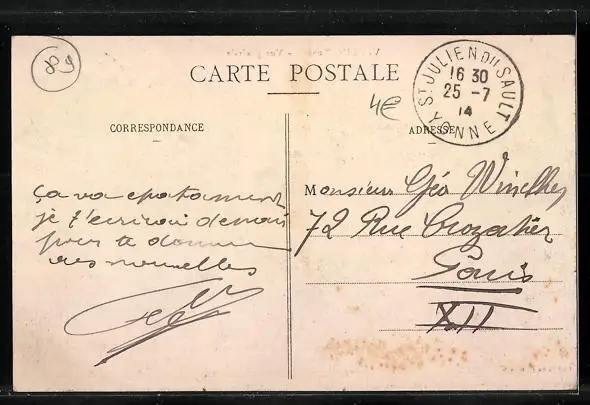 89
CARTE POSTALE
ST JULIEN DU SAULT
16 30
25 - 7
14
YONNE
4€
CORRESPONDANCE
ADRESSE
ça va epatament
je t'ecrirai demain
pour te donner
des nouvelles
Monsieur Géo
72 Rue Crozatier
Paris
XII